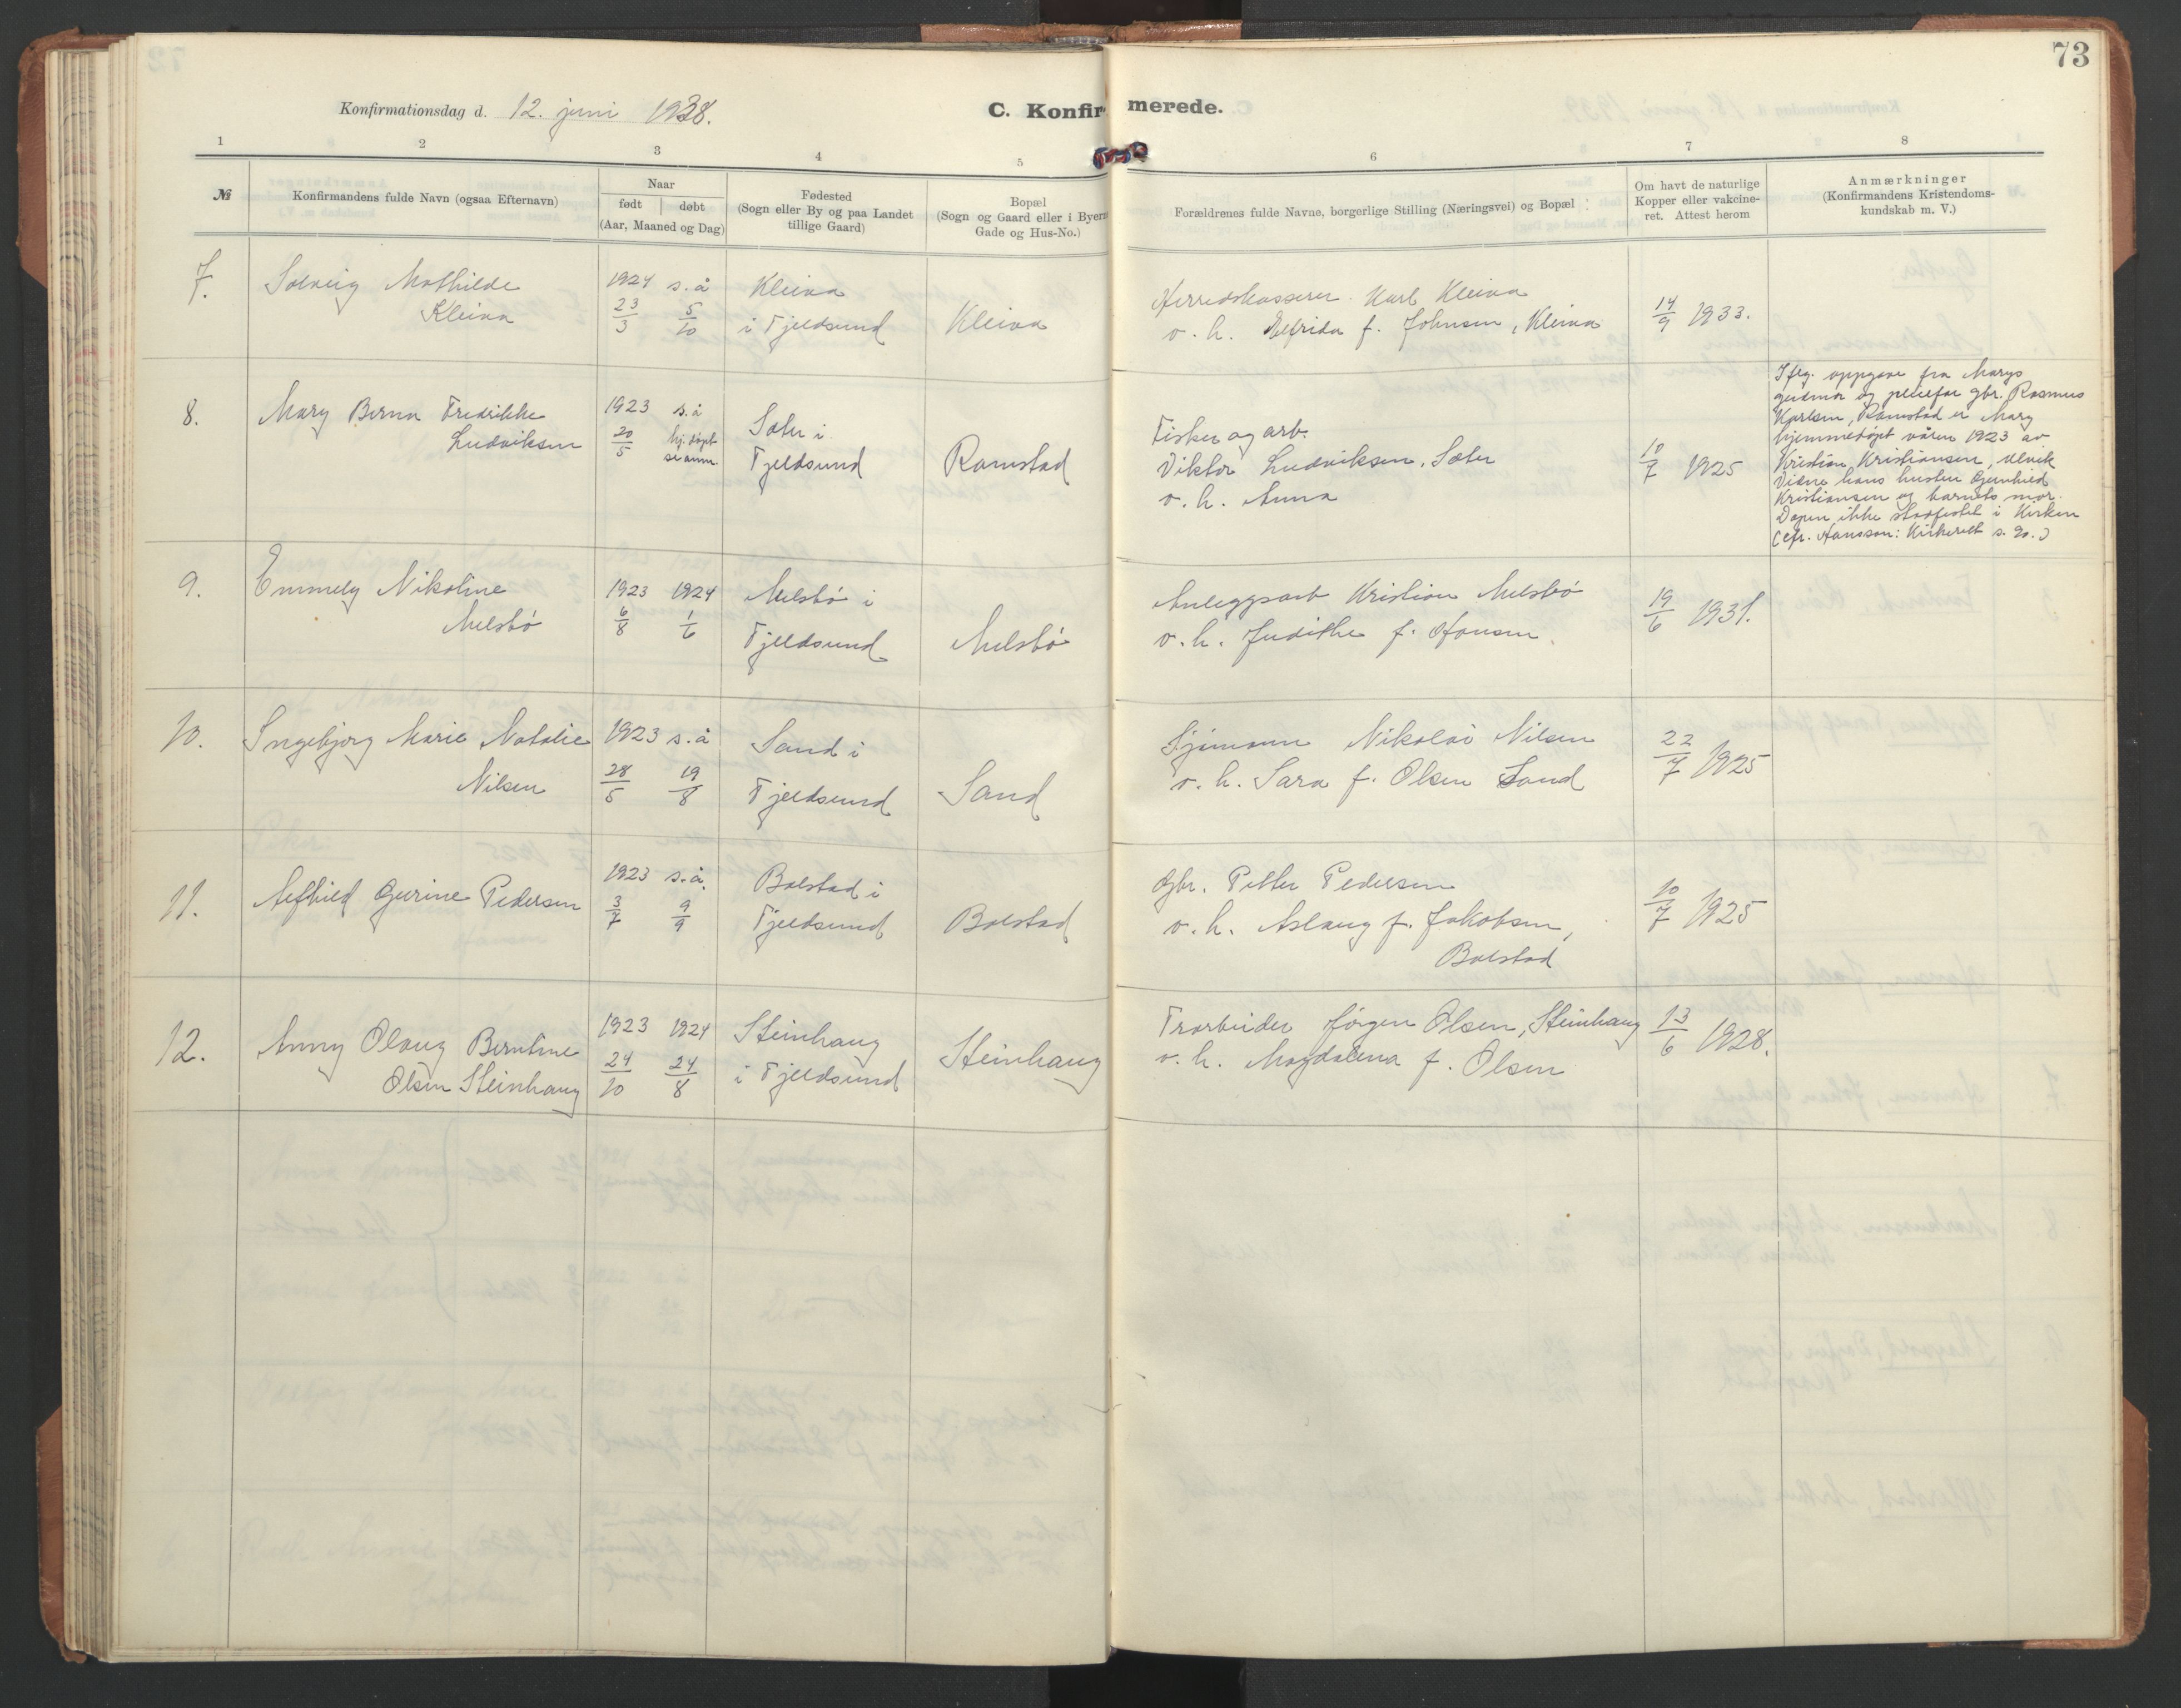 73
Konfirmationsdag d. 12. juni 1938.
C. Konfirmerede.
1 2 3 4 5 6 7 8
№
Konfirmandens fulde Navn (ogsaa Efternavn)
Naar
født | døbt
(Aar, Maaned og Dag)
Fødested
(Sogn eller By og paa Landet
tillige Gaard)
Bopæl
(Sogn og Gaard eller i Byern
Gade og Hus-No.)
Forældrenes fulde Navne, borgerlige Stilling (Næringsvei) og Bopæl
Om havt de naturlige
Kopper eller vakcine-
ret. Attest herom
Anmærkninger
(Konfirmandens Kristendoms-
kundskab m. V.)
7.
Solveig Mathilde
Kleiva
1924 s. å
23/3 5/10
Kleiva
i Fjeldsund
Kleiva
Herredskasserer Karl Kleiva
o. h. Elfrida f. Johnsen, Kleiva
14/9 1933.
8.
Mary Berna Fredrikke
Ludviksen
1923 s. å
20/5 hj. døpt
se anm.
Sæter i
Fjeldsund
Ramstad
Fisker og arb.
Viktor Ludviksen, Sæter
o. h. Anna
10/7 1925
Iflg. oppgave fra Marys
gudmor og pleiefar gbr. Rasmus
Karlsen, Ramstad er Mary
hjemmedøpt våren 1923 av
Kristian Kristiansen, Ulvik
Vidne hans hustru Gunhild
Kristiansen og barnets mor.
Dåpen ikke stadfestet i Kirken
(cfr. Hansson: Kirkerett s. 90.)
9.
Emmely Nikoline
Melsbø
1923 1924
6/8 1/6
Melsbø i
Fjeldsund
Melsbø
Anleggsarb Kristian Melsbø
o. h. Judithe f. Hansen.
19/6 1931.
10.
Ingebjørg Marie Natalie
Nilsen
1923 s. å
28/5 19/8
Sand i
Fjeldsund
Sand
Sjømann Nikolai Nilsen
o. h. Sara f. Olsen Sand
22/7 1925
11.
Alfhild Gurine Pedersen
1923 s. å.
3/7 9/9
Bolstad i
Fjeldsund
Bolstad
Gbr. Petter Pedersen
o. h. Aslaug f. Jakobsen,
Bolstad
10/7 1925
12.
Anny Olaug Berntine
Olsen Steinhaug
1923 1924
24/10 24/8
Steinhaug
i Fjeldsund
Steinhaug
Trarbeider Jørgen Olsen, Steinhaug
o. h. Magdalena f. Olsen
13/6 1928.